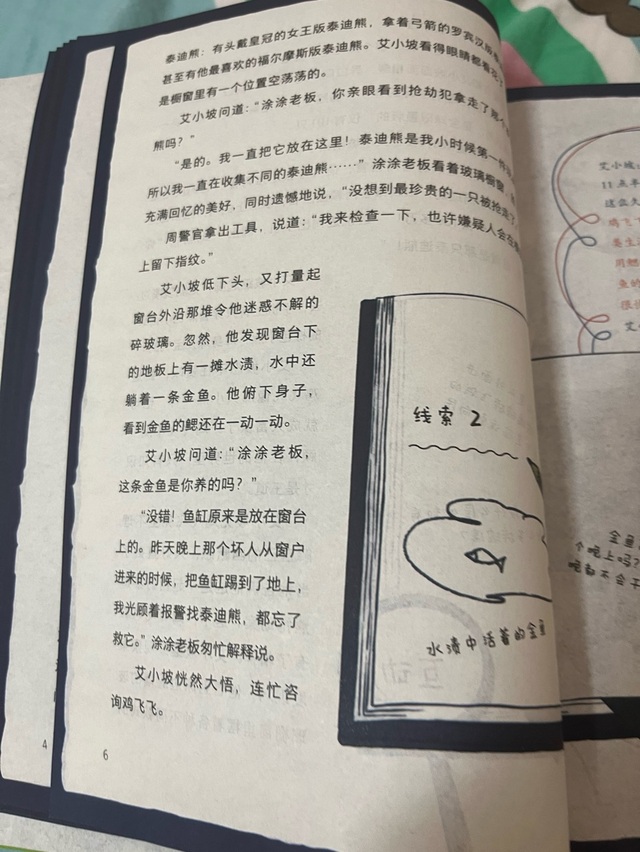 泰迪熊：有头戴皇冠的女王版泰迪熊，拿着弓箭的罗宾汉版
甚至有他最喜欢的福尔摩斯版泰迪熊。艾小坡看得眼睛都看花
是橱窗里有一个位置空荡荡的。
艾小坡问道：“涂涂老板，你亲眼看到抢劫犯拿走了那个
熊吗？”
“是的。我一直把它放在这里！泰迪熊是我小时候第一
所以我一直在收集不同的泰迪熊……”涂涂老板看着玻璃橱窗，
充满回忆的美好，同时遗憾地说，“没想到最珍贵的一只被抢走了
周警官拿出工具，说道：“我来检查一下，也许嫌疑人会在
上留下指纹。”
艾小坡低下头，又打量起
窗台外沿那堆令他迷惑不解的
碎玻璃。忽然，他发现窗台下
的地板上有一摊水渍，水中还
躺着一条金鱼。他俯下身子，
看到金鱼的鳃还在一动一动。
艾小坡问道：“涂涂老板，
这条金鱼是你养的吗？”
“没错！鱼缸原来是放在窗台
上的。昨天晚上那个坏人从窗户
进来的时候，把鱼缸踢到了地上，
我光顾着报警找泰迪熊，都忘了
救它。”涂涂老板匆忙解释说。
艾小坡恍然大悟，连忙咨
询鸡飞飞。
线索 2
水渍中活着的金鱼
4
6
艾小坡
11点
这盆
鸡飞飞
养生
用鳃
鱼的
很
艾
金鱼
个晚上吗？
晚都不会